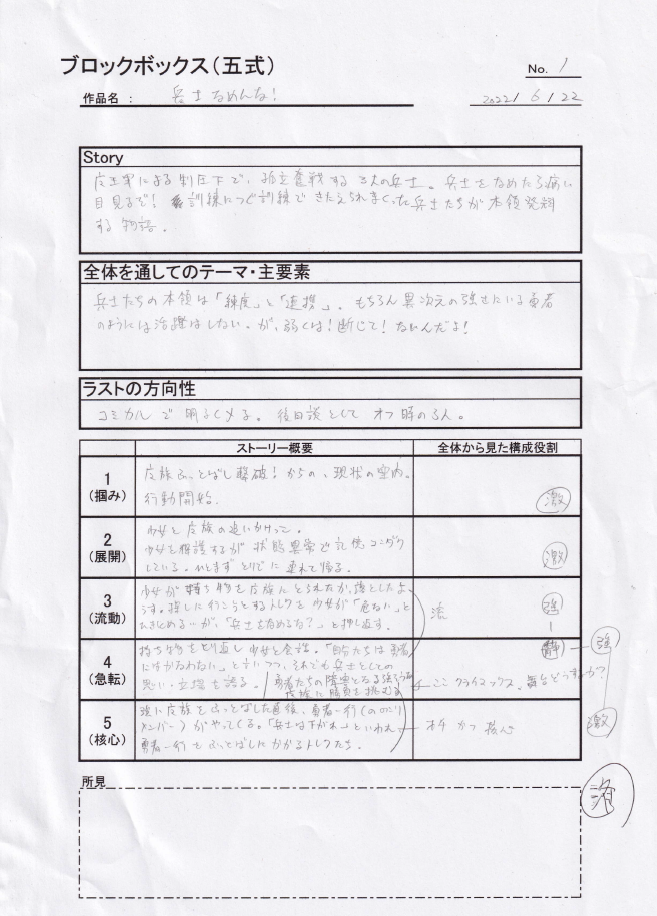 ブロックボックス(五式)
No. 1
作品名 : 兵士なめんな!
2022/ 6/ 22
Story
による制圧下で、孤立奮戦する3人の兵士。兵士をなめたら痛い
目見るぞ! 訓練につぐ訓練できたえられまくった兵士たちが本領発揮
する物語。
全体を通してのテーマ・主要素
兵士たちの本領は「練度」と「連携」。もちろん異次元の強さにいる勇者
のようには活躍はしない。が、弱くは!断じて!ないんだよ!
ラストの方向性
コミカルで明るくメる。後日談としてオフ時の3人。
ストーリー概要
全体から見た構成役割
1
(掴み)
ふっとばし撃破! からの、現状の案内。
行動開始。
激
2
(展開)
少女と の追いかけっこ。
少女を保護するが 状態異常で記憶コンダク
している。ひとまずとりでに連れて帰る。
激
3
(流動)
少女が持ち物を にとられたか落としたよ
うす。探しに行こうとする を少女が「危ない」と
ひきとめるが、「兵士をなめるな?」と押し返す。
強
4
(急転)
持ち物をとり返し少女と会話。「自分たちは勇者
にはかなわない」と言いつつ、それでも兵士としての
思い・立場を語る。
勇者たちの障害となる強
に勝負を挑む
静
強
ここ クライマックス。舞台どうするか?
5
(核心)
強 をふっとばした直後、勇者一行(の
メンバー)がやってくる。「兵士は下がれ」といわれ
勇者一行をふっとばしにかかる たち。
オチ かつ 核心
激
所見